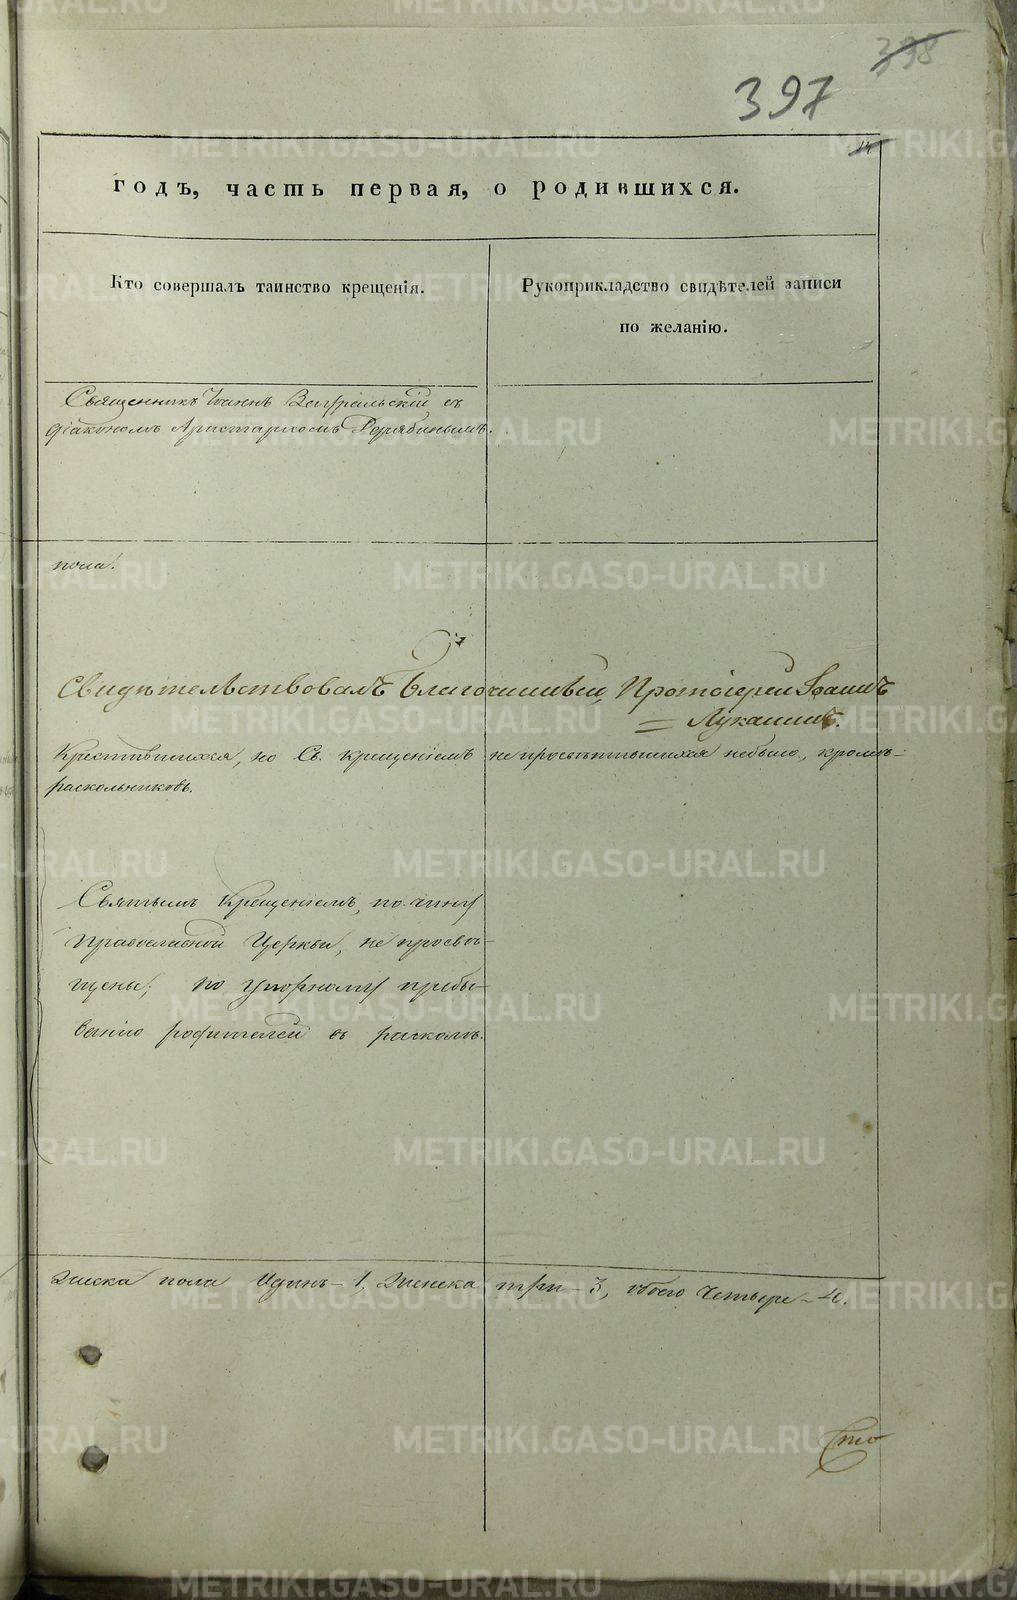 398
397
14
годъ, часть первая, о родившихся.
Кто совершалъ таинство крещенія.
Рукоприкладство свидѣтелей записи
по желанію.
Священникъ Іоаннъ съ
діакономъ Аристархомъ
пола.
Свидѣтельствовалъ Благочинный, Протоіерей Іоаннъ
= Луканинъ.
Крестившихся, но Св. крещеніемъ не просвѣтившихся небыло, кромѣ
раскольниковъ.
Святымъ Крещеніемъ, по чину
православной Церкви, не просвѣ-
щены; по упорному пребы-
ванію родителей въ расколѣ.
женска пола Одинъ - 1, Женска три - 3, обоего Четыре - 4.
Сто
METRIKI.GASO-URAL.RU